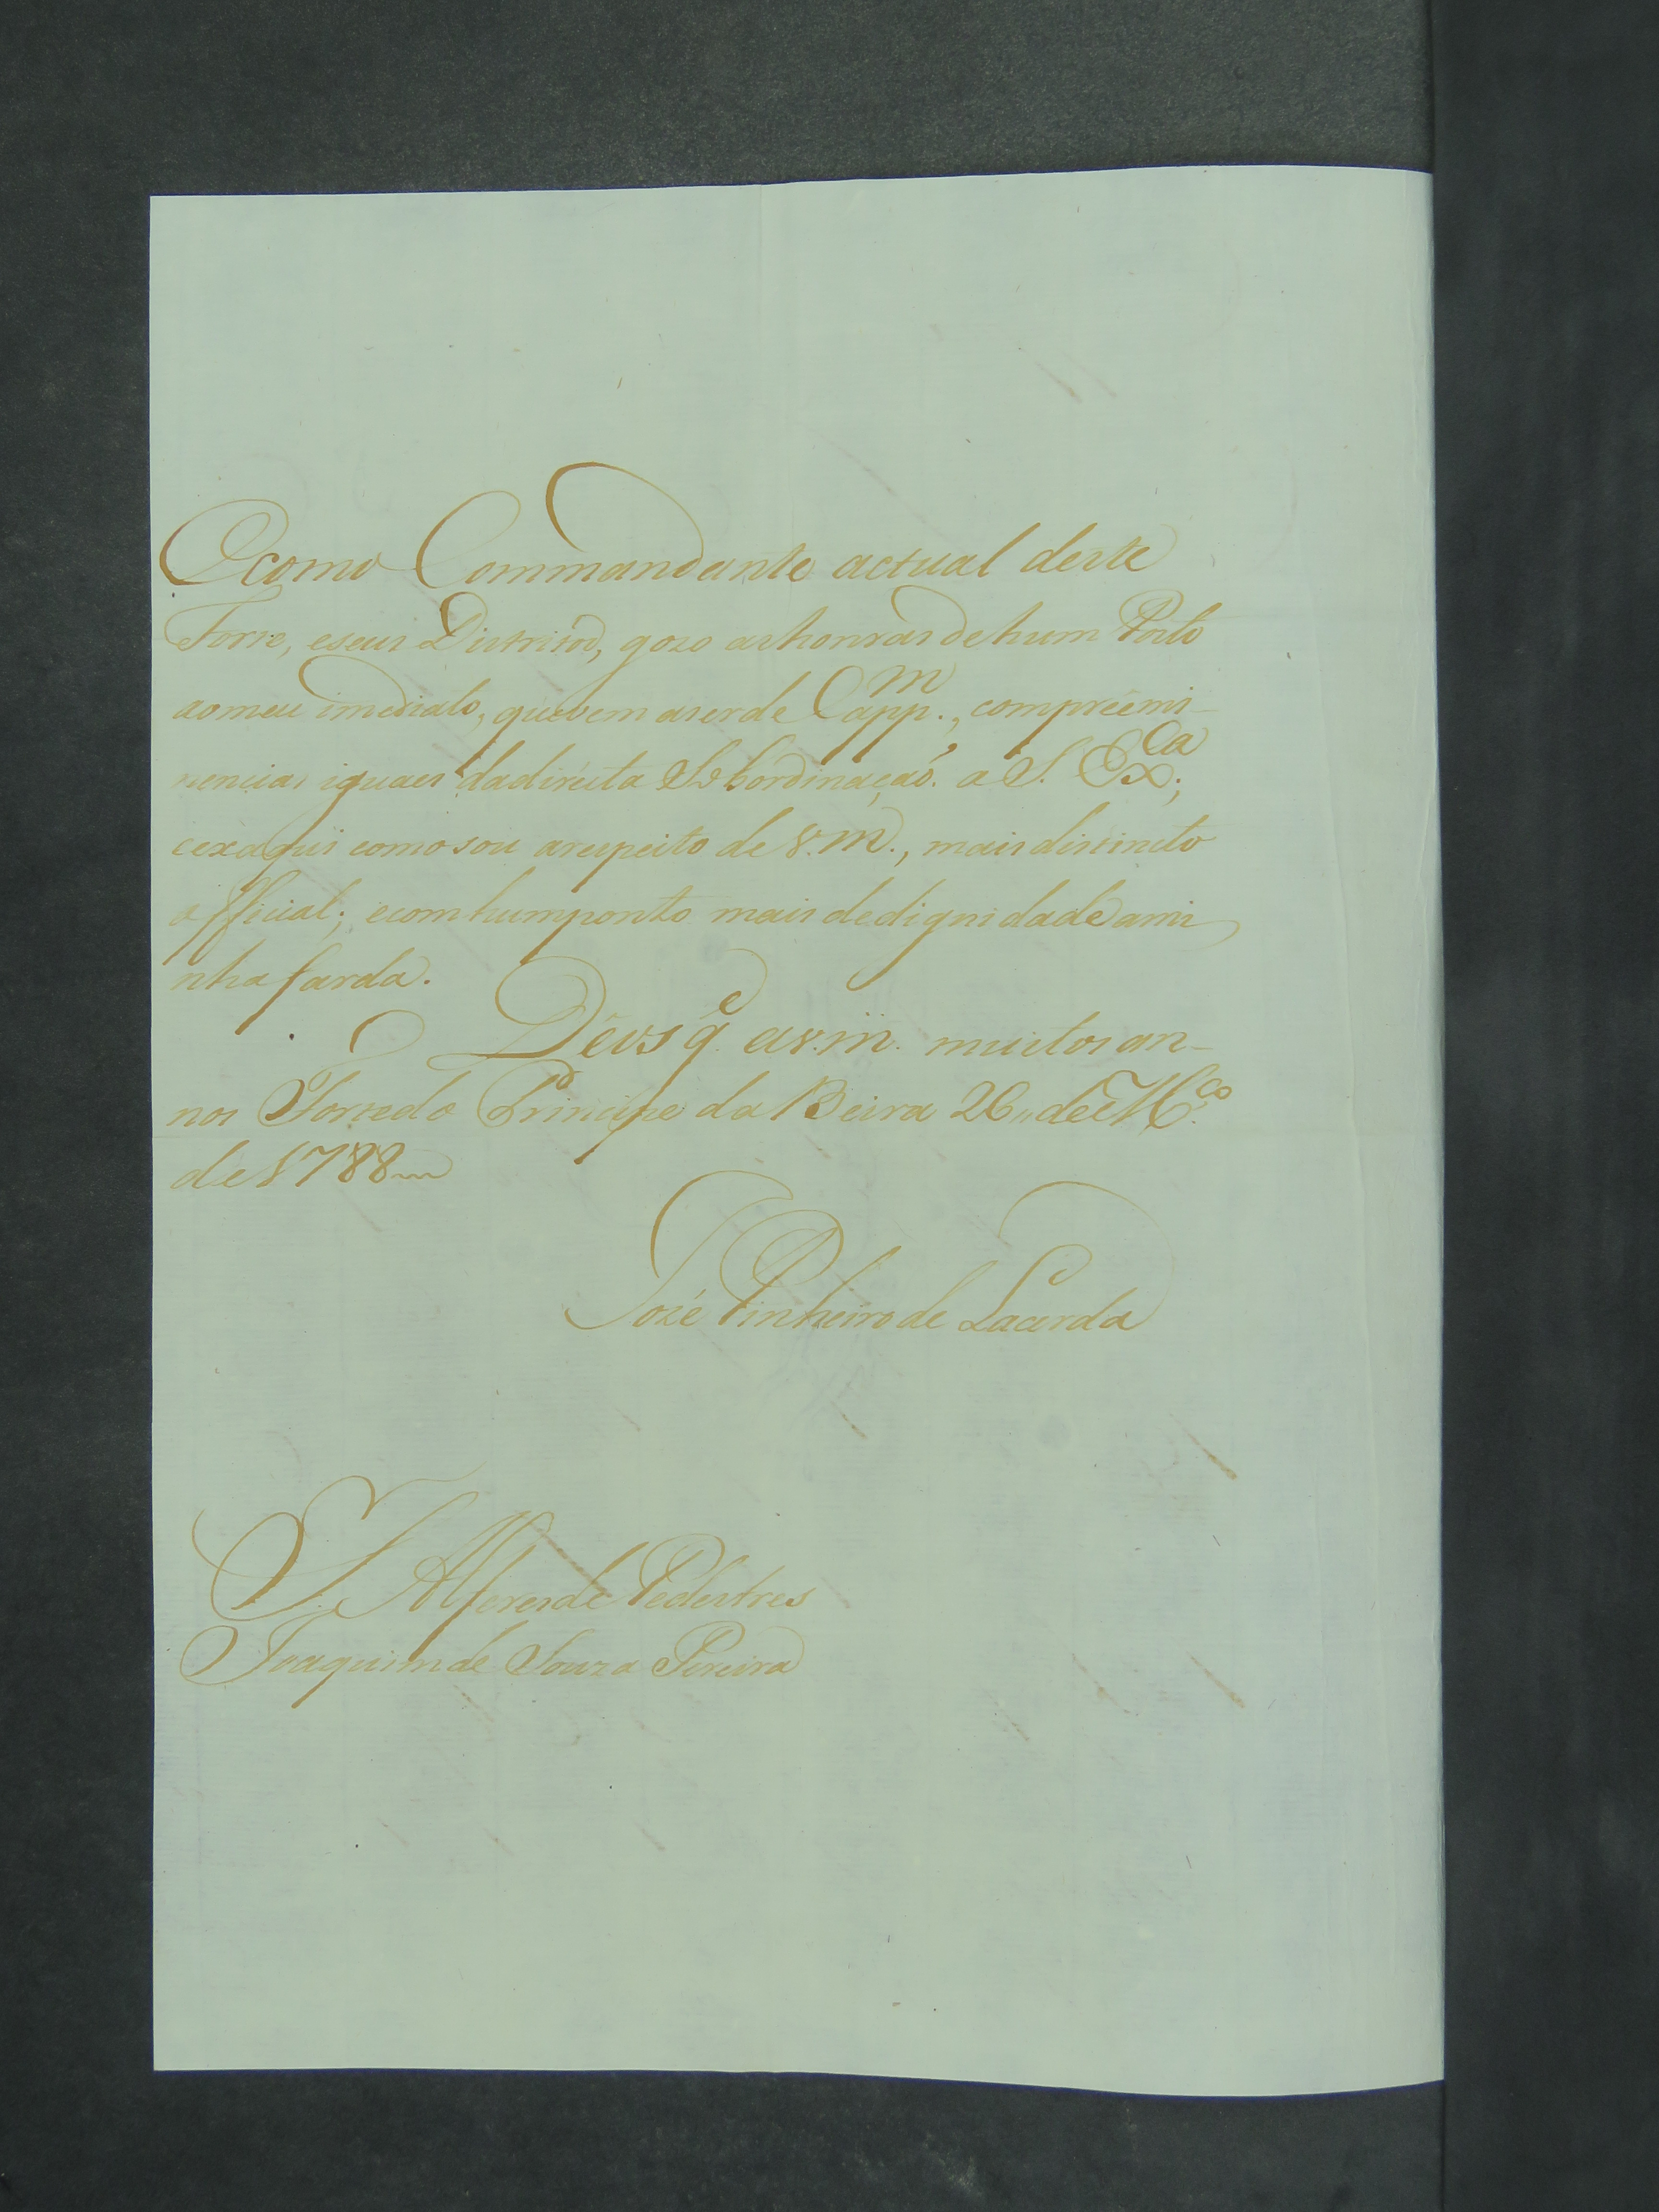 E como Commandante actual deste
Forte, e seus Districtos, gozo as honras de hum Posto
ao meu imediato, que vem a ser de Capp.m, com preêmi-
nencias iguaes da dirécta Subordinação a S. Ex.ca;
e ex aqui como sou a respeito de V.M., mais distincto
official; e com hum ponto mais de dignidade a mi
nha farda.
Deus g.e a v.m. muitos an-
nos Forte do Principe da Beira 26,, de M.ço
de 1788
Jozé Pinheiro de Lacerda
S.r Alferes de Pedestres
Joaquim de Souza Pereira